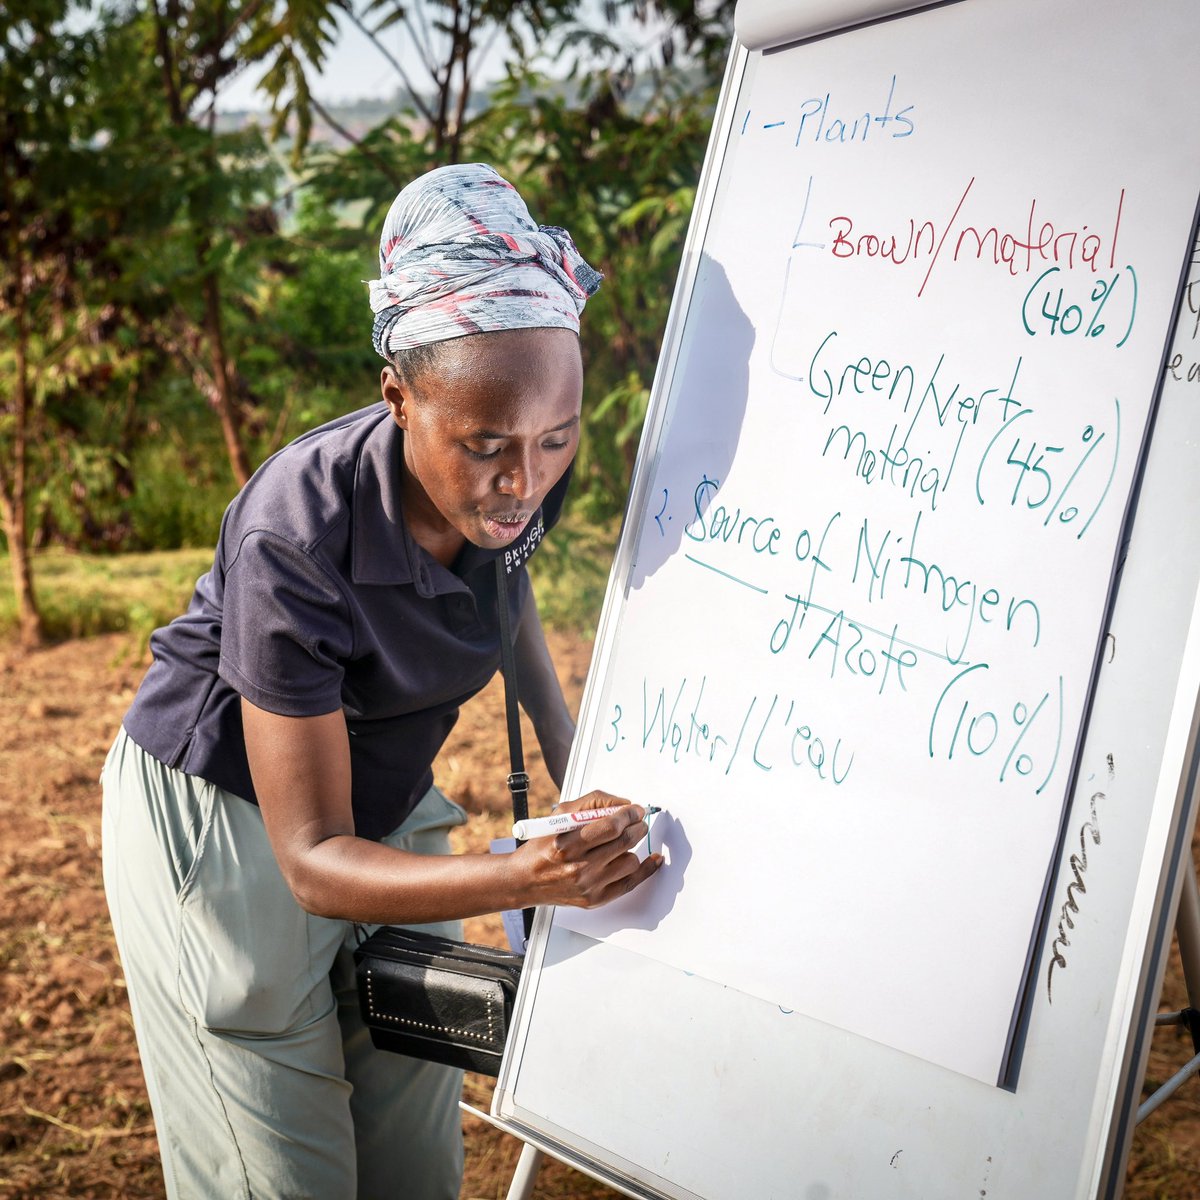 1 - Plants
Brown/material
(40%)
Green/vert
material (45%)
2. Source of Nitrogen
d'Azote (10%)
3. Water/L'eau
RWANDA